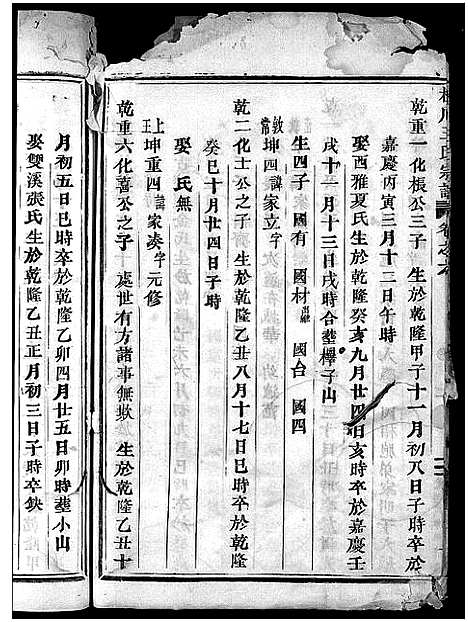 王氏宗譜
乾重一化棖公三子 生於乾隆甲子十一月初八日子時卒於
嘉慶丙寅三月十二日午時
娶西雅夏氏生於乾隆癸亥九月廿四日亥時卒於嘉慶壬
戌十一月十三日戌時合塟櫸子山
生四子 家國有 國材 國台 國四
敦常坤四諱家立字
乾二化士公之子 生於乾隆乙丑八月十七日巳時卒於乾隆
癸巳十月廿四日子時
娶 氏無
上王坤重四諱家湊字元修
乾重六化喜公之子 處世有方諸事無欺 生於乾隆乙丑十
月初五日巳時卒於乾隆乙卯四月廿五日卯時塟小山
娶雙溪張氏生於乾隆乙丑正月初三日子時卒缺